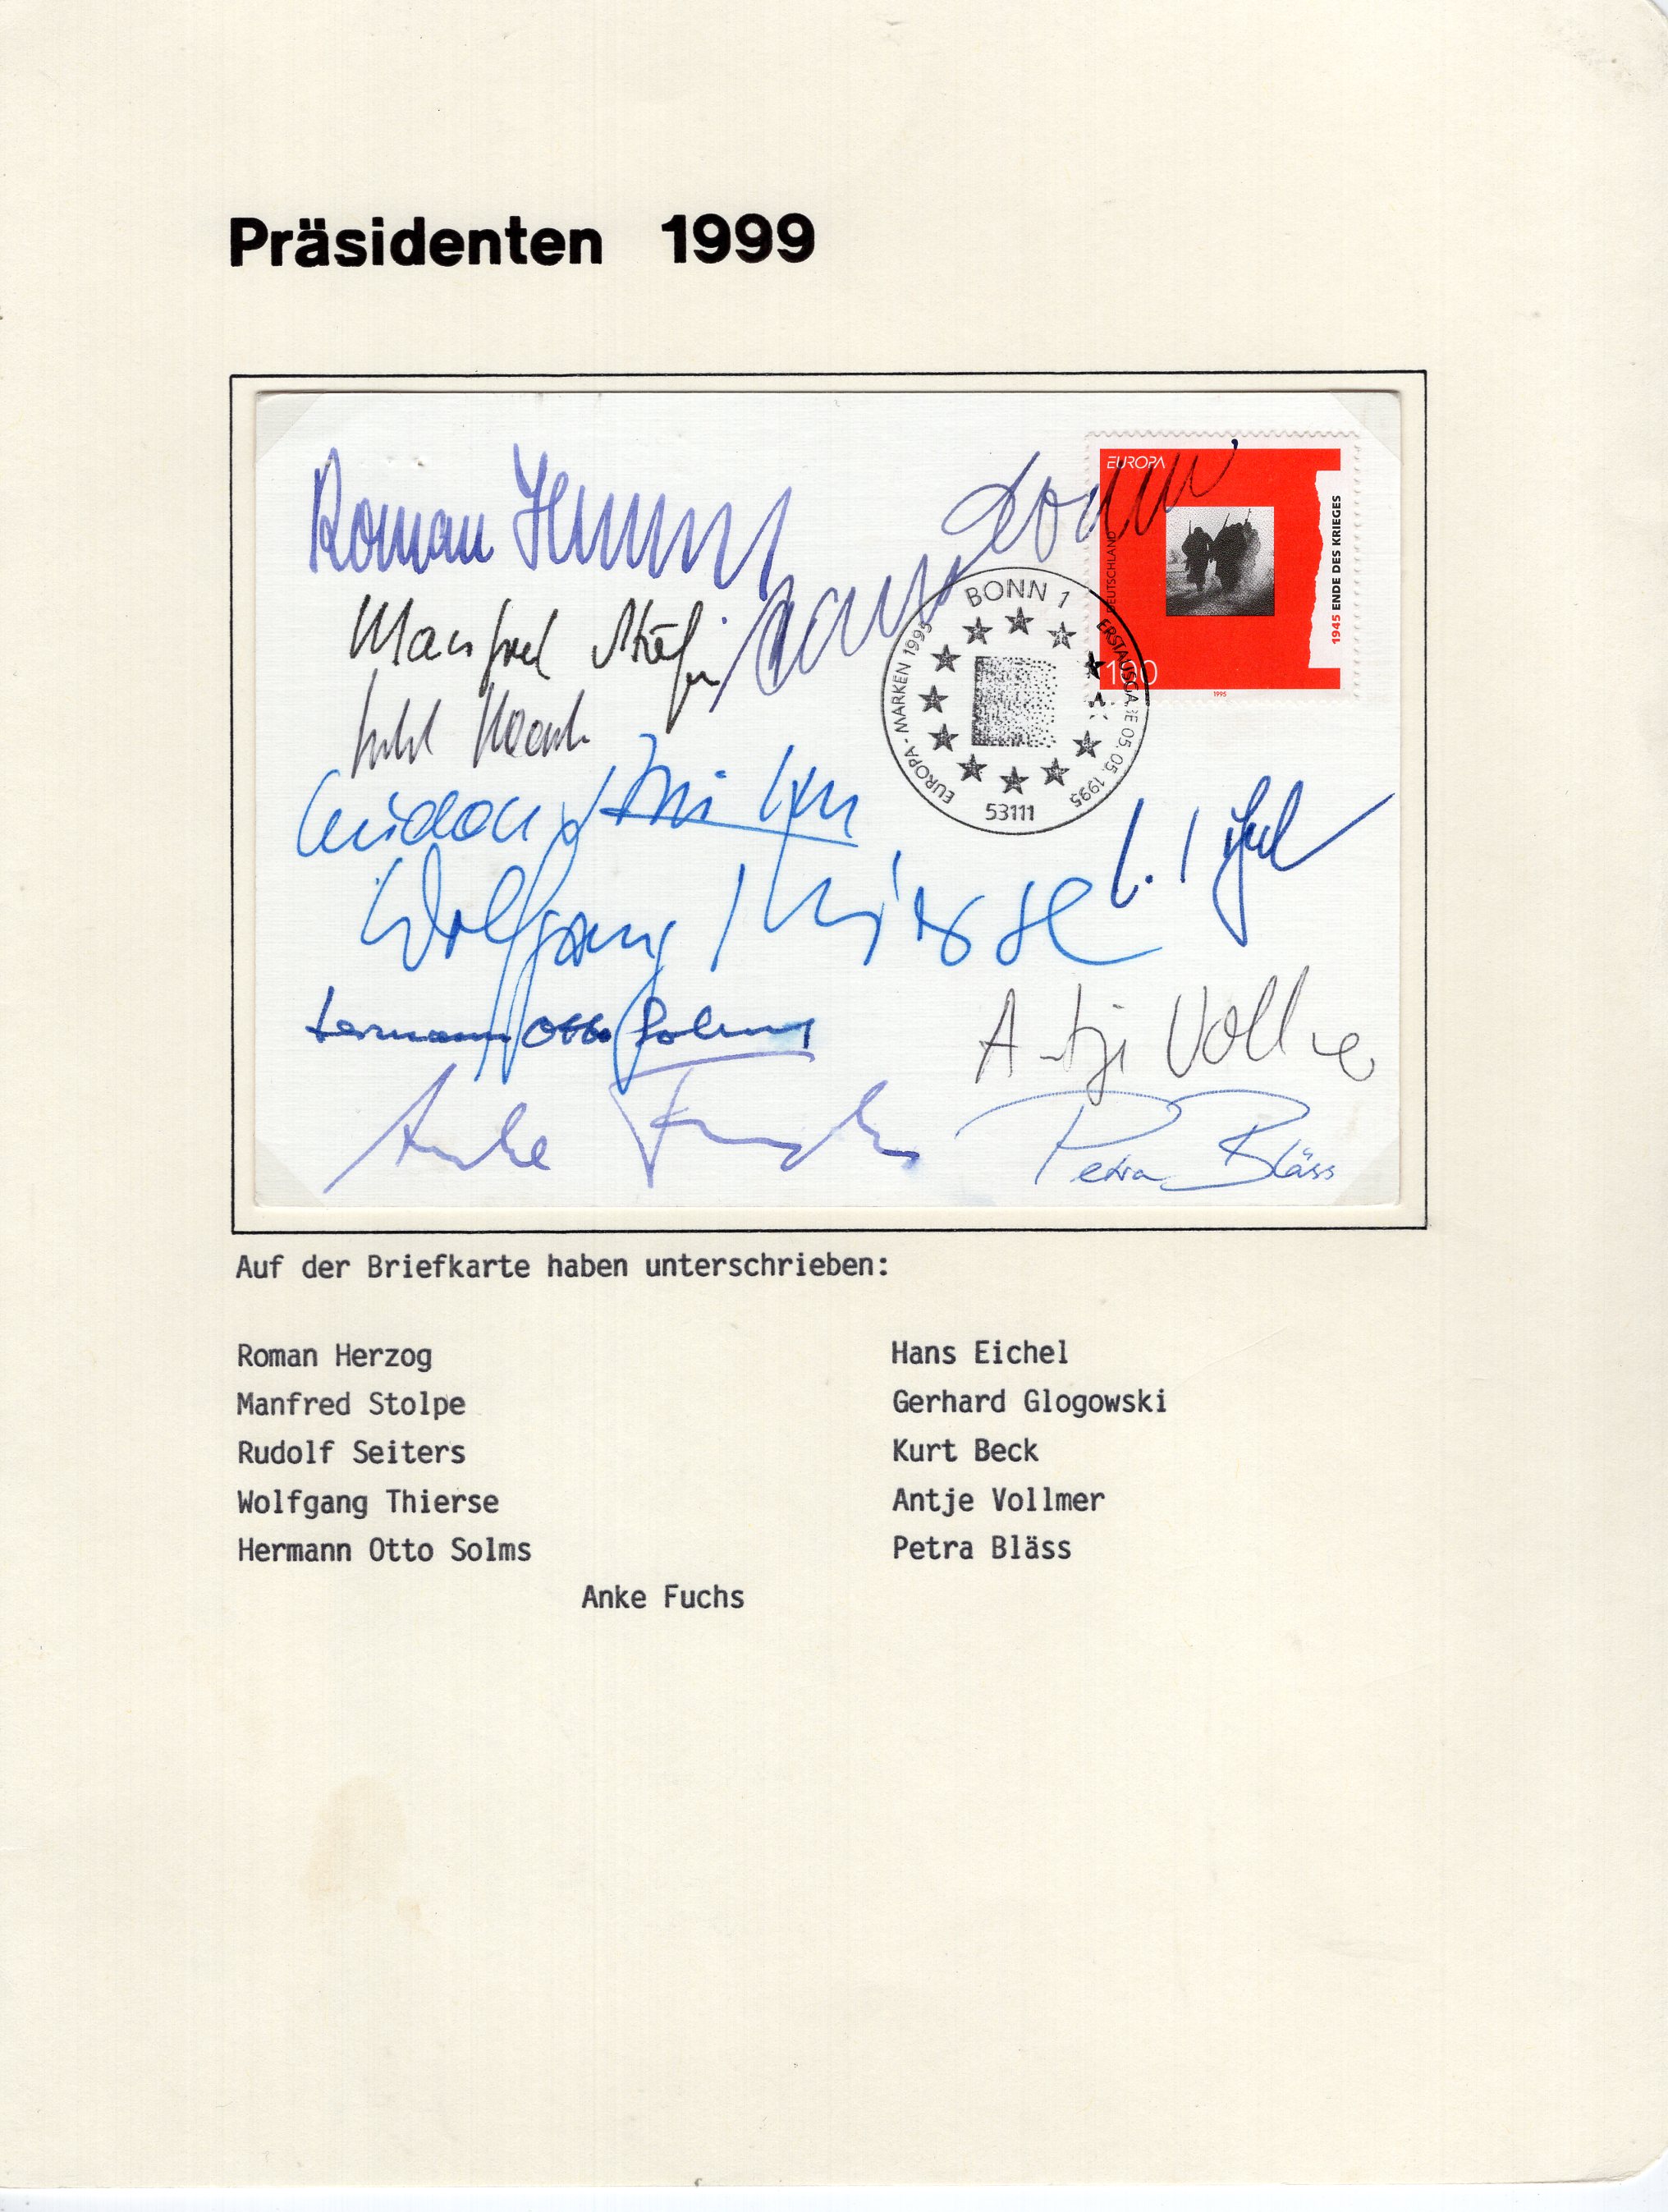 Präsidenten 1999
Roman Herzog
EUROPA
DEUTSCHLAND
1945 ENDE DES KRIEGES
100
1995
BONN 1
EUROPA-MARKEN 1995
ERSTAUSGABE 05.05.1995
53111
Manfred Stolpe
Wolfgang Thierse
Hermann Otto Solms
Antje Vollmer
Anke Fuchs
Petra Bläss
Auf der Briefkarte haben unterschrieben:
Roman Herzog Hans Eichel
Manfred Stolpe Gerhard Glogowski
Rudolf Seiters Kurt Beck
Wolfgang Thierse Antje Vollmer
Hermann Otto Solms Petra Bläss
Anke Fuchs